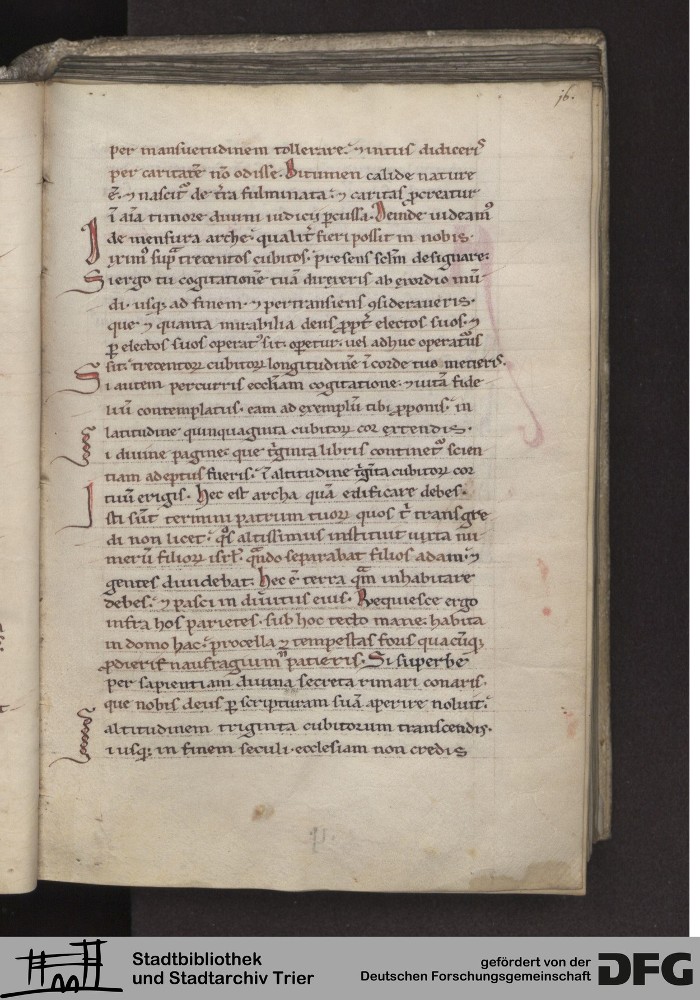 16.
per mansuetudinem tollerare. ⁊ intus didiceris
per caritatē nō odisse. Bitumen calide nature
ē. ⁊ nascit᷑ de t̄ra fulminata. ⁊ caritas ꝓcreatur
ī aīa timore diuini iudicii ꝑcussa. Deinde uideamꝰ
de mensura arche. qualit̄ fieri possit in nobis.
Primū sup̄ trecentos cubitos. presens sclm̄ designare.
Si ergo tu cogitationē tuā direxeris ab exordio mū
di. usq; ad finem. ⁊ pertransiens ꝯsideraueris.
que ⁊ quanta mirabilia deus ꝓpt̄ electos suos. ⁊
ꝑ electos suos operatꝰ sit. operetur. uel adhuc operaturus
sit. trecentoꝝ cubitoꝝ longitudinē ī corde tuo metieris.
Si autem percurris eccl̄iam cogitatione. ⁊ uitā fide
liū contemplatus. eam ad exemplū tibi ꝓponis. in
latitudine quinquaginta cubitoꝝ cor extendis.
Si diuine pagine. que t'ginta libris continetᷣ scien
tiam adeptus fueris. ī altitudine t'gīta cubitoꝝ cor
tuū erigis. Hec est archa quā edificare debes.
Isti sūt termini patrum tuoꝝ quos t̄ transgre
di non licet. qͦs altissimus instituit iuxta nu
merū filioꝝ isrl̄. qͣndo separabat filios adam. ⁊
gentes diuidebat. Hec ē terra qͣm inhabitare
debes. ⁊ pasci in diuitiis eius. Requiesce ergo
infra hos parietes. sub hoc tecto mane. habita
in domo hac. procella ⁊ tempestas foris quacūq;
naufragium n̄ patieris. Si superbe
per sapientiam diuina secreta rimari conaris.
que nobis deus ꝑ scripturam suā aperire noluit.
altitudinem triginta cubitorum transcendis.
Si usq; in finem seculi. ecclesiam non credis
Stadtbibliothek
und Stadtarchiv Trier
gefördert von der
Deutschen Forschungsgemeinschaft
DFG